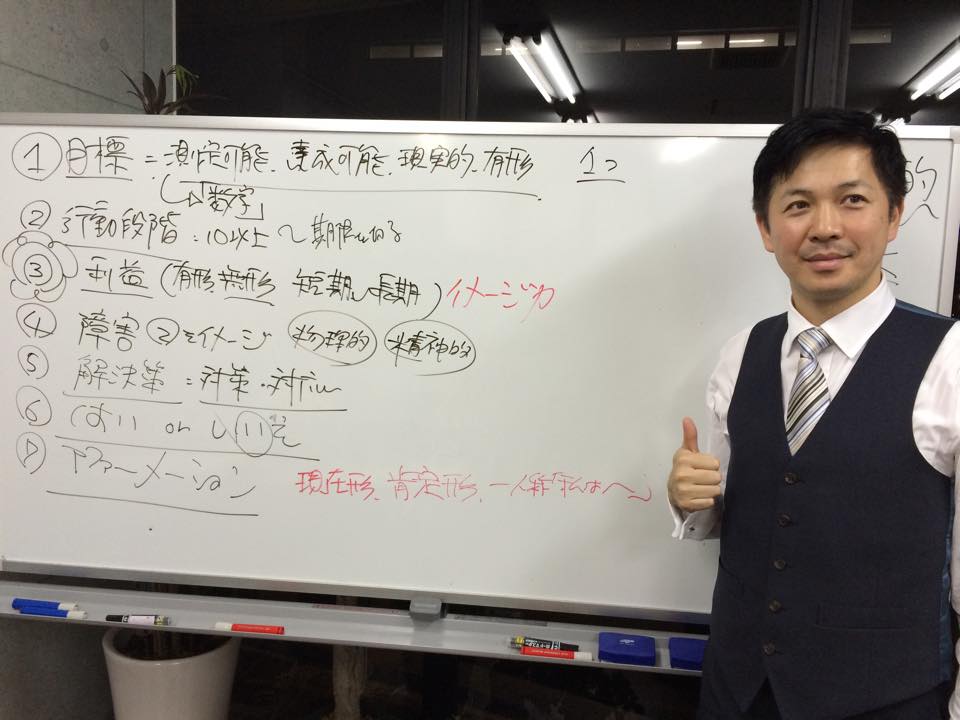 ① 目標 = 測定可能、達成可能、現実的、有形 1つ
↳「数字」
② 行動段階:10以上 〜期限を切る
③ 利益 (有形、無形 短期、長期) イメージ力
④ 障害 ②をイメージ 物理的 精神的
⑤ 解決策 = 対策・対応
⑥ はい or いいえ
⑦ アファーメーション 現在形、肯定形、一人称「私は〜」
的